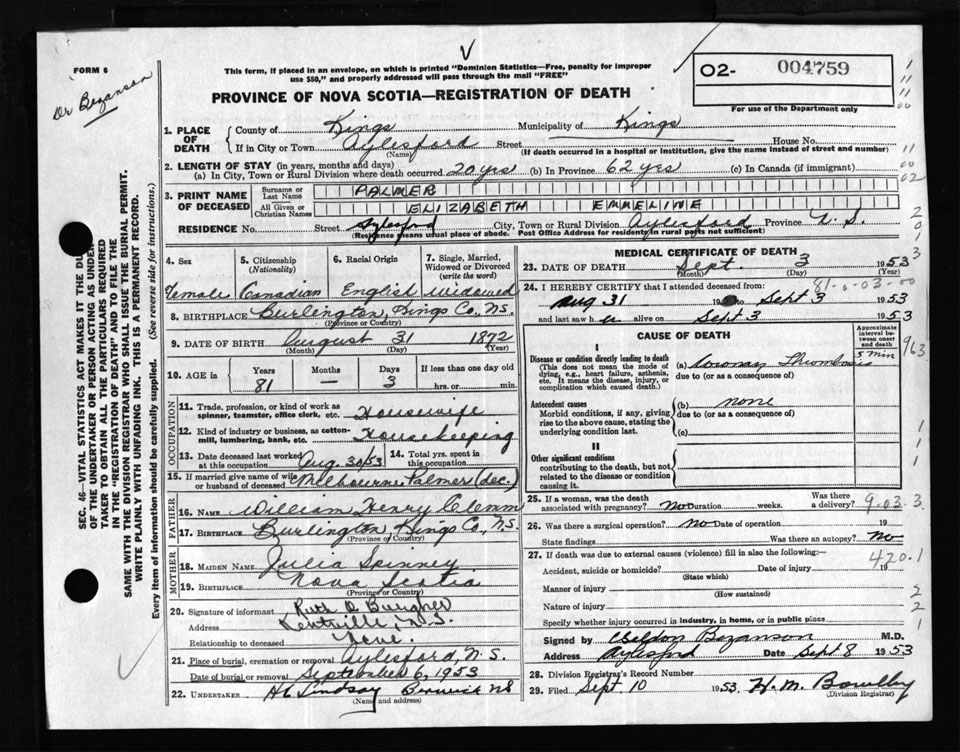 FORM 6
Dr Bezanson
V
This form, if placed in an envelope, on which is printed "Dominion Statistics—Free, penalty for improper use $50," and properly addressed will pass through the mail "FREE"
PROVINCE OF NOVA SCOTIA—REGISTRATION OF DEATH
02- 004759
For use of the Department only
SEC. 46—VITAL STATISTICS ACT MAKES IT THE DU
OF THE UNDERTAKER OR PERSON ACTING AS UNDER-
TAKER TO OBTAIN ALL THE PARTICULARS REQUIRED
IN THE "REGISTRATION OF DEATH" AND TO FILE THE
SAME WITH THE DIVISION REGISTRAR WHO SHALL ISSUE THE BURIAL PERMIT.
WRITE PLAINLY WITH UNFADING INK. THIS IS A PERMANENT RECORD.
Every item of information should be carefully supplied. (See reverse side for instructions.)
1. PLACE OF DEATH
County of Kings Municipality of Kings
If in City or Town Aylesford Street House No.
(Name) (If death occurred in a hospital or institution, give the name instead of street and number)
2. LENGTH OF STAY (in years, months and days)
(a) In City, Town or Rural Division where death occurred 20 yrs (b) In Province 62 yrs (c) In Canada (if immigrant)
3. PRINT NAME OF DECEASED
Surname or Last Name PALMER
All Given or Christian Names ELIZABETH EMMELINE
RESIDENCE No. Street City, Town or Rural Division Aylesford Province N. S.
(Residence means usual place of abode. Post Office Address for residents in rural parts not sufficient)
4. Sex
Female
5. Citizenship (Nationality)
Canadian
6. Racial Origin
English
7. Single, Married, Widowed or Divorced (write the word)
widowed
8. BIRTHPLACE Burlington, Kings Co, N.S.
(Province or Country)
9. DATE OF BIRTH August 31 1872
(Month) (Day) (Year)
10. AGE in Years Months Days If less than one day old
81 — 3 hrs. or min.
OCCUPATION
11. Trade, profession, or kind of work as spinner, teamster, office clerk, etc. Housewife
12. Kind of industry or business, as cotton-mill, lumbering, bank, etc. Housekeeping
13. Date deceased last worked at this occupation Aug. 30/53 14. Total yrs. spent in this occupation
15. If married give name of wife or husband of deceased Milbourne Palmer (dec.)
FATHER
16. NAME William Henry Clemm
17. BIRTHPLACE Burlington Kings Co, N.S.
(Province or Country)
MOTHER
18. MAIDEN NAME Julia Spinney
19. BIRTHPLACE Nova Scotia
(Province or Country)
20. Signature of informant Ruth
Address Kentville, N.S.
Relationship to deceased
21. Place of burial, cremation or removal Aylesford, N.S.
Date of burial or removal September 6, 1953
22. UNDERTAKER Lindsay Berwick NS
(Name and address)
MEDICAL CERTIFICATE OF DEATH
23. DATE OF DEATH Sept. 3 1953
(Month) (Day) (Year)
81-0-03-00
24. I HEREBY CERTIFY that I attended deceased from:
Aug 31 19 to Sept 3 1953
and last saw h er alive on Sept 3 1953
CAUSE OF DEATH
Approximate interval between onset and death
I
Disease or condition directly leading to death
(This does not mean the mode of dying, e.g., heart failure, asthenia, etc. It means the disease, injury, or complication which caused death.)
(a) Coronary Thrombosis 5 min
due to (or as a consequence of)
Antecedent causes
Morbid conditions, if any, giving rise to the above cause, stating the underlying condition last.
(b) none
due to (or as a consequence of)
(c)
II
Other significant conditions
contributing to the death, but not related to the disease or condition causing it.
25. If a woman, was the death associated with pregnancy? No Duration weeks. Was there a delivery?
9.03.3
26. Was there a surgical operation? No Date of operation 19
State findings Was there an autopsy? No
27. If death was due to external causes (violence) fill in also the following:—
420.1
Accident, suicide or homicide? Date of injury 19
(State which)
Manner of injury
(How sustained)
Nature of injury
Specify whether injury occurred in industry, in home, or in public place
Signed by Bezanson M.D.
Address Aylesford Date Sept 8 1953
28. Division Registrar's Record Number
29. Filed Sept 10 1953 H. M. Bowlby
(Division Registrar)